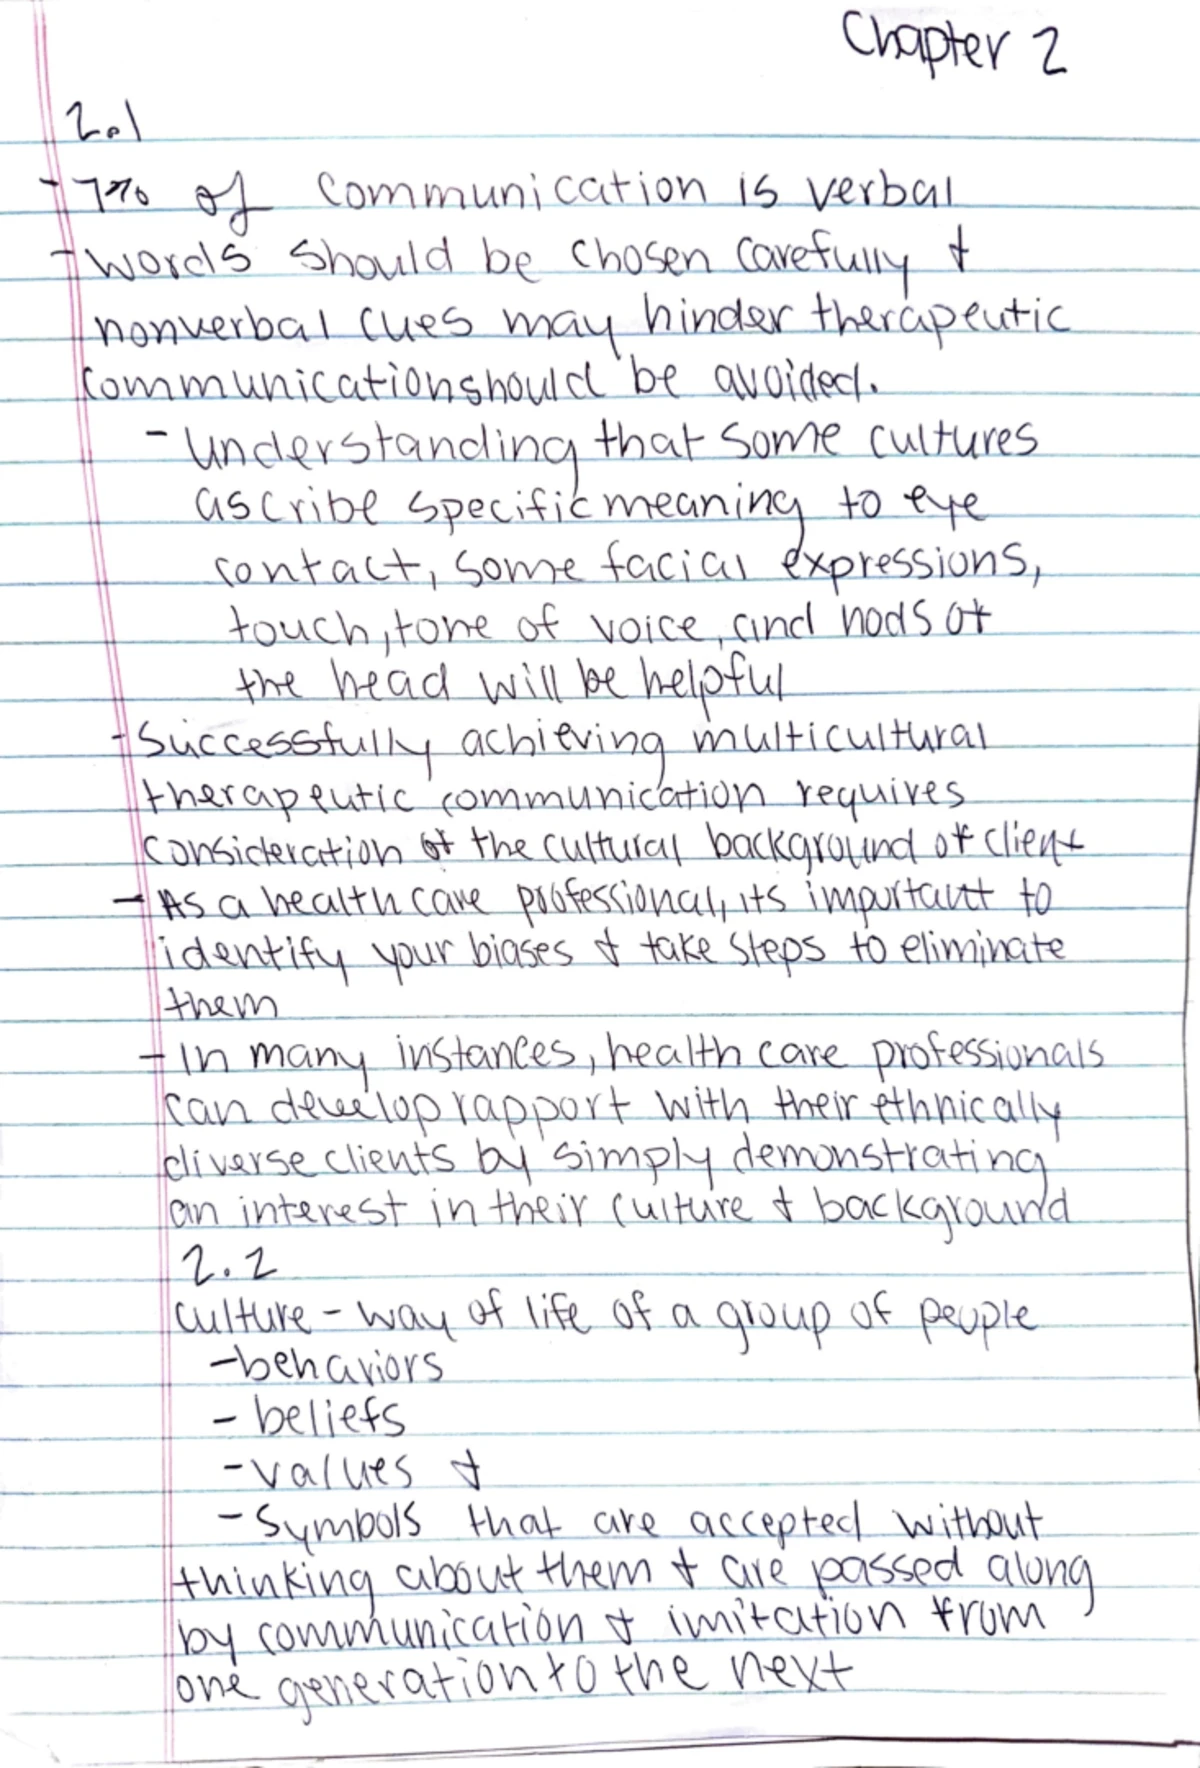 Chapter 2
2.1
- 7% of communication is verbal
- words should be chosen carefully &
nonverbal cues may hinder therapeutic
communication should be avoided.
- Understanding that some cultures
ascribe specific meaning to eye
contact, some facial expressions,
touch, tone of voice, and nods of
the head will be helpful
- Successfully achieving multicultural
therapeutic communication requires
consideration of the cultural background of client
- As a health care professional, its important to
identify your biases & take steps to eliminate
them
- In many instances, health care professionals
can develop rapport with their ethnically
diverse clients by simply demonstrating
an interest in their culture & background
2.2
culture - way of life of a group of people
- behaviors
- beliefs
- values &
- Symbols that are accepted without
thinking about them & are passed along
by communication & imitation from
one generation to the next